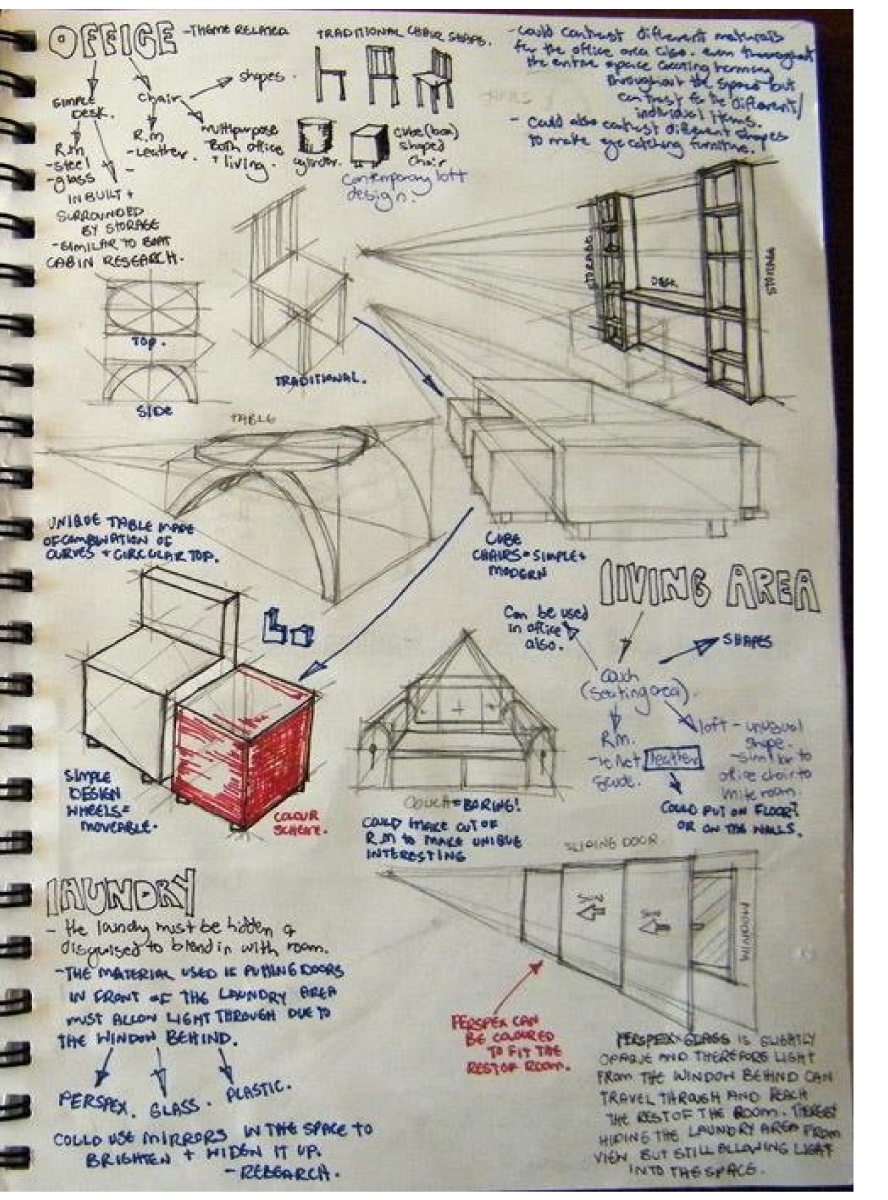 OFFICE
-THEME RELATED
TRADITIONAL CHAIR SHAPE.
- Could contrast different materials
for the office area also. even throughout
the entire space creating harmony
throughout the space but
contrast to be different/
individual items.
- Could also contrast different shapes
to make eyecatching furniture.
SIMPLE
DESK.
Chair
shapes.
R.M
-steel
-glass
R.M
-Leather.
multipurpose
both office
+ living.
cylinder.
cube(box)
shaped
chair
contemporary loft
design.
IN BUILT +
SURROUNDED
BY STORAGE
-SIMILAR TO BOAT
CABIN RESEARCH.
STORAGE
DESK
STORAGE
TOP.
SIDE
TRADITIONAL.
TABLE
UNIQUE TABLE MADE
OF COMBINATION OF
CURVES + CIRCULAR TOP.
CUBE
CHAIRS = SIMPLE +
MODERN
LIVING AREA
Can be used
in office
also.
SHAPES
couch
(seating area).
R.M.
leather
suede.
loft - unusual
shape.
-similar to
office chair to
room.
COULD PUT ON FLOOR?
OR ON THE WALLS.
SIMPLE
DESIGN
WHEELS =
MOVEABLE.
COLOUR
SCHEME.
COUCH = BORING!
COULD MAKE OUT OF
R.M TO MAKE UNIQUE
INTERESTING
SLIDING DOOR
WINDOW
LAUNDRY
- the laundry must be hidden &
disguised to blend in with room.
-THE MATERIAL USED IS PUTTING DOORS
IN FRONT OF THE LAUNDRY AREA
MUST ALLOW LIGHT THROUGH DUE TO
THE WINDOW BEHIND.
PERSPEX. GLASS. PLASTIC.
COULD USE MIRRORS IN THE SPACE TO
BRIGHTEN + WIDEN IT UP.
- RESEARCH.
PERSPEX CAN
BE COLOURED
TO FIT THE
REST OF ROOM.
PERSPEX GLASS IS SLIGHTLY
OPAQUE AND THEREFORE LIGHT
FROM THE WINDOW BEHIND CAN
TRAVEL THROUGH AND REACH
THE REST OF THE ROOM.
HIDING THE LAUNDRY AREA FROM
VIEW BUT STILL ALLOWING LIGHT
INTO THE SPACE.